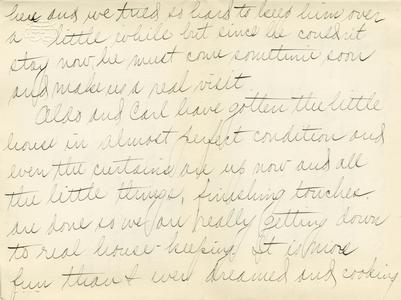 here and we tried so hard to keep him over
a little while but since he couldn't
stay now he must come sometime soon
and make us a real visit.
Aldo and Carl have gotten the little
house in almost perfect condition and
even the curtains are up now and all
the little things, finishing touches.
are done so we are really getting down
to real house-keeping. It is more
fun than I ever dreamed and cooking